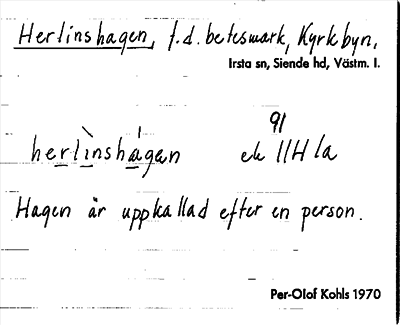 Herlinshagen, f.d. betesmark, Kyrkbyn,
Irsta sn, Siende hd, Västm. l.
91
herlìnshágen ek 11H 1a
Hagen är uppkallad efter en person.
Per-Olof Kohls 1970